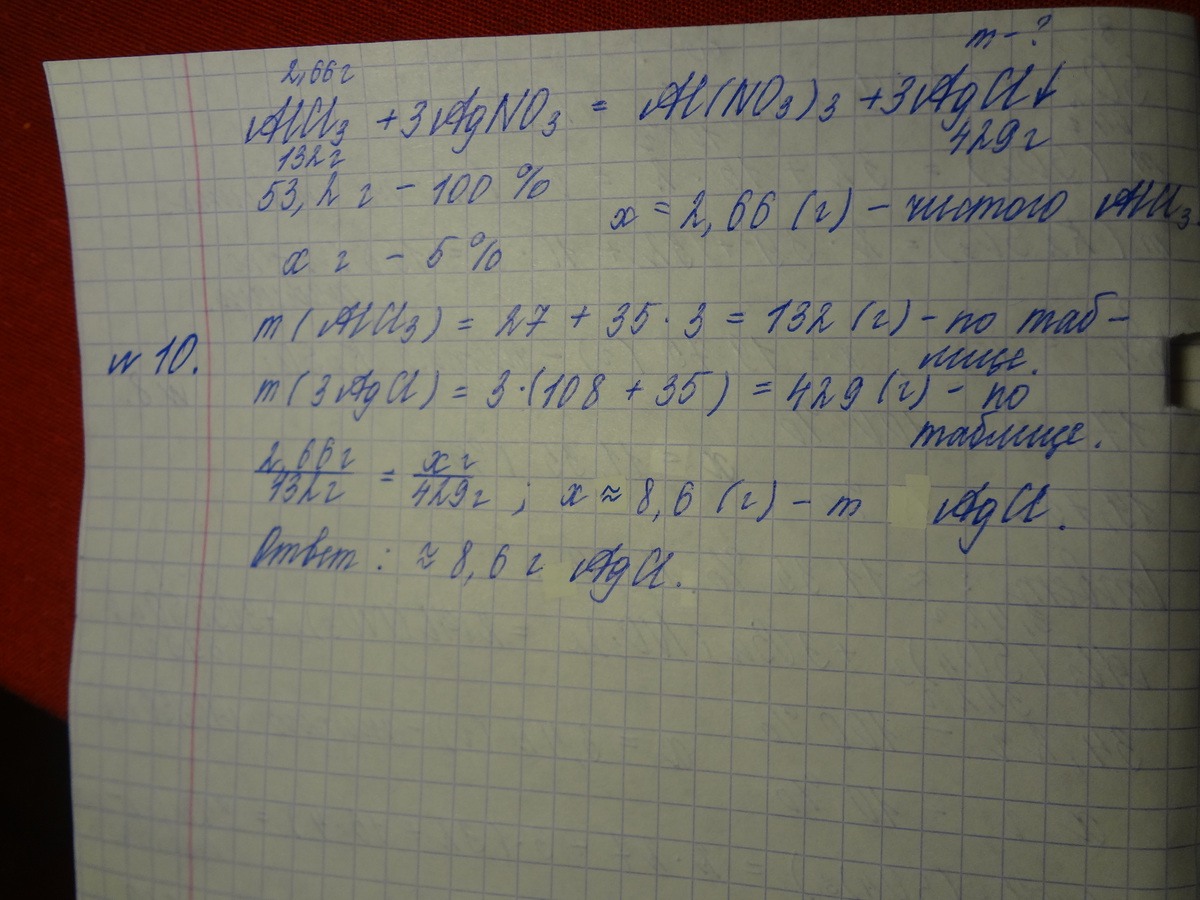 m - ?
2,66 г
AlCl₃ + 3AgNO₃ = Al(NO₃)₃ + 3AgCl↓
132 г
429 г
53,2 г - 100 %
x = 2,66 (г) - чистого AlCl₃.
x г - 5 %
m (AlCl₃) = 27 + 35 · 3 = 132 (г) - по таб-
лице.
№ 10.
m (3AgCl) = 3·(108 + 35) = 429 (г) - по
таблице.
2,66 г / 132 г = x г / 429 г ; x ≈ 8,6 (г) - m AgCl.
Ответ : ≈ 8,6 г AgCl.